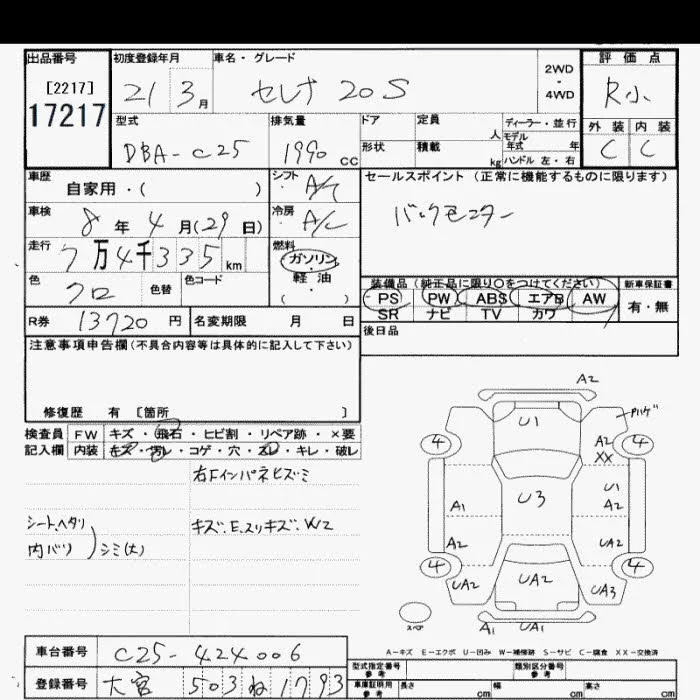 出品番号
[2217]
17217
初度登録年月
21 3月
車名・グレード
セレナ 20S
2WD
・
4WD
評価点
R小
外装 内装
C C
型式
DBA-C25
排気量
1990 cc
ドア
形状
定員
人
積載
kg
ディーラー・並行
モデル
年式 年
ハンドル 左・右
車歴
自家用・( )
シフト
A/T
セールスポイント (正常に機能するものに限ります)
バックモニター
車検
8年4月(29日)
冷房
A/C
走行
7万4千335km
燃料
ガソリン
・
軽油
・
( )
色
クロ
色替
色コード
装備品 (純正品に限り○をつけてください)
PS PW ABS エアB AW
SR ナビ TV カワ
新車保証書
有・無
R券 13720円
名変期限 月 日
後日品
注意事項申告欄(不具合内容等は具体的に記入して下さい)
修復歴 有 [箇所 ]
検査員
記入欄
FW キズ・飛石・ヒビ割・リペア跡・×要
内装 キズ・汚レ・コゲ・穴・スレ・キレ・破レ
右Fインパネヒズミ
シート、ヘタリ
内バリ
シミ(大)
キズ、E、スリキズ、W2
A2
U1
ハゲ
4
4
A2
XX
U3
U1
A2
A1
A2
UA2
4
4
UA2
UA2
UA3
スペア
A1
UA1
A-キズ E-エクボ U-凹み W-補修跡 S-サビ C-腐食 XX-交換済
車台番号 C25-424006
登録番号 大宮 503 ね 1793
型式指定番号
参考
類別区分番号
参考
車庫証明用
参考
長さ cm
幅 cm
高さ cm